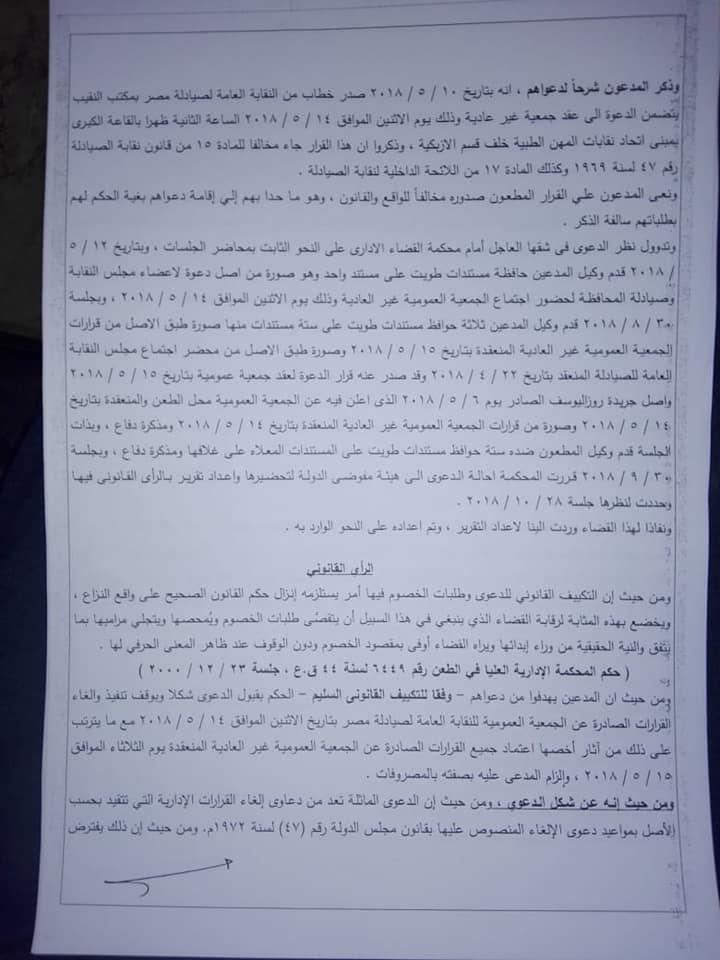 وذكر المدعون شرحاً لدعواهم ، انه بتاريخ ١٠ / ٥ / ٢٠١٨ صدر خطاب من النقابة العامة لصيادلة مصر بمكتب النقيب
يتضمن الدعوة الى عقد جمعية غير عادية وذلك يوم الاثنين الموافق ١٤ / ٥ / ٢٠١٨ الساعة الثانية ظهرا بالقاعة الكبرى
بمبنى اتحاد نقابات المهن الطبية خلف قسم الازبكية ، وذكروا ان هذا القرار جاء مخالفا للمادة ١٥ من قانون نقابة الصيادلة
رقم ٤٧ لسنة ١٩٦٩ وكذلك المادة ١٧ من اللائحة الداخلية لنقابة الصيادلة .
ونعى المدعون علي القرار المطعون صدوره مخالفاً للواقع والقانون ، وهو ما حدا بهم إلي إقامة دعواهم بغية الحكم لهم
بطلباتهم سالفة الذكر .
وتدوول نظر الدعوى فى شقها العاجل أمام محكمة القضاء الادارى على النحو الثابت بمحاضر الجلسات ، وبتاريخ ١٢ / ٥
/ ٢٠١٨ قدم وكيل المدعين حافظة مستندات طويت على مستند واحد وهو صورة من اصل دعوة لاعضاء مجلس النقابة
وصيادلة المحافظة لحضور اجتماع الجمعية العمومية غير العادية وذلك يوم الاثنين الموافق ١٤ / ٥ / ٢٠١٨ ، وبجلسة
٣٠ / ٨ / ٢٠١٨ قدم وكيل المدعين ثلاثة حوافظ مستندات طويت على ستة مستندات منها صورة طبق الاصل من قرارات
الجمعية العمومية غير العادية المنعقدة بتاريخ ١٥ / ٥ / ٢٠١٨ وصورة طبق الاصل من محضر اجتماع مجلس النقابة
العامة للصيادلة المنعقد بتاريخ ٢٢ / ٤ / ٢٠١٨ وقد صدر عنه قرار الدعوة لعقد جمعية عمومية بتاريخ ١٥ / ٥ / ٢٠١٨
واصل جريدة روزاليوسف الصادر يوم ٦ / ٥ / ٢٠١٨ الذى اعلن فيه عن الجمعية العمومية محل الطعن والمنعقدة بتاريخ
١٤ / ٥ / ٢٠١٨ وصورة من قرارات الجمعية العمومية غير العادية المنعقدة بتاريخ ١٤ / ٥ / ٢٠١٨ ومذكرة دفاع ، وبذات
الجلسة قدم وكيل المطعون ضده ستة حوافظ مستندات طويت على المستندات المعلاه على غلافها ومذكرة دفاع ، وبجلسة
٣٠ / ٩ / ٢٠١٨ قررت المحكمة احالة الدعوى الى هيئة مفوضى الدولة لتحضيرها واعداد تقرير بالرأى القانونى فيها
وحددت لنظرها جلسة ٢٨ / ١٠ / ٢٠١٨ .
ونفاذا لهذا القضاء وردت الينا لاعداد التقرير ، وتم اعداده على النحو الوارد به .
الرأي القانوني
ومن حيث إن التكييف القانوني للدعوى وطلبات الخصوم فيها أمر يستلزمه إنزال حكم القانون الصحيح على واقع النزاع ،
ويخضع بهذه المثابة لرقابة القضاء الذي ينبغي في هذا السبيل أن يتقصَّى طلبات الخصوم ويُمحصها ويتجلي مراميها بما
يتفق والنية الحقيقية من وراء إبدائها ويراه القضاء أوفى بمقصود الخصوم ودون الوقوف عند ظاهر المعنى الحرفي لها .
( حكم المحكمة الإدارية العليا في الطعن رقم ٦٤٤٩ لسنة ٤٤ ق.ع ، جلسة ٢٣ / ١٢ / ٢٠٠٠ )
ومن حيث ان المدعين يهدفوا من دعواهم – وفقا للتكييف القانونى السليم – الحكم بقبول الدعوى شكلا وبوقف تنفيذ والغاء
القرارات الصادرة عن الجمعية العمومية للنقابة العامة لصيادلة مصر بتاريخ الاثنين الموافق ١٤ / ٥ / ٢٠١٨ مع ما يترتب
على ذلك من آثار أخصها اعتماد جميع القرارات الصادرة عن الجمعية العمومية غير العادية المنعقدة يوم الثلاثاء الموافق
١٥ / ٥ / ٢٠١٨ ، وإلزام المدعى عليه بصفته بالمصروفات .
ومن حيث إنه عن شكل الدعوي ، ومن حيث إن الدعوى الماثلة تعد من دعاوى إلغاء القرارات الإدارية التي تتقيد بحسب
الأصل بمواعيد دعوى الإلغاء المنصوص عليها بقانون مجلس الدولة رقم (٤٧) لسنة ١٩٧٢م. ومن حيث إن ذلك يفترض